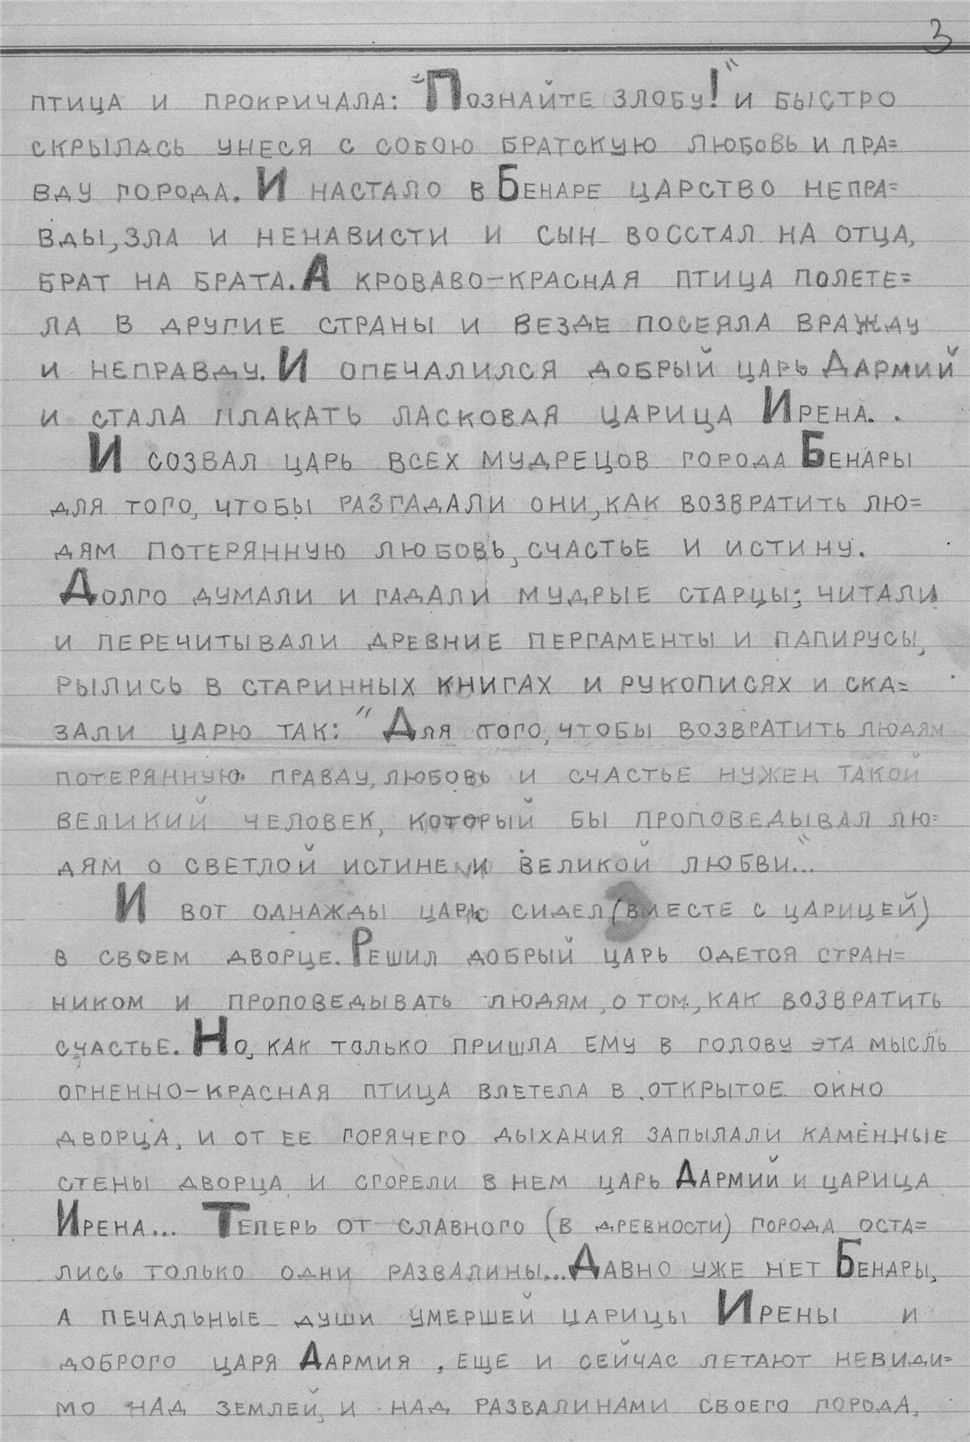 3
ПТИЦА И ПРОКРИЧАЛА: "ПОЗНАЙТЕ ЗЛОБУ!" И БЫСТРО
СКРЫЛАСЬ УНЕСЯ С СОБОЮ БРАТСКУЮ ЛЮБОВЬ И ПРА=
ВДУ ГОРОДА. И НАСТАЛО В БЕНАРЕ ЦАРСТВО НЕПРА=
ВДЫ, ЗЛА И НЕНАВИСТИ И СЫН ВОССТАЛ НА ОТЦА,
БРАТ НА БРАТА. А КРОВАВО-КРАСНАЯ ПТИЦА ПОЛЕТЕ=
ЛА В ДРУГИЕ СТРАНЫ И ВЕЗДЕ ПОСЕЯЛА ВРАЖДУ
И НЕПРАВДУ. И ОПЕЧАЛИЛСЯ ДОБРЫЙ ЦАРЬ ДАРМИЙ
И СТАЛА ПЛАКАТЬ ЛАСКОВАЯ ЦАРИЦА ИРЕНА. .
И СОЗВАЛ ЦАРЬ ВСЕХ МУДРЕЦОВ ГОРОДА БЕНАРЫ
ДЛЯ ТОГО, ЧТОБЫ РАЗГАДАЛИ ОНИ, КАК ВОЗВРАТИТЬ ЛЮ=
ДЯМ ПОТЕРЯННУЮ ЛЮБОВЬ, СЧАСТЬЕ И ИСТИНУ.
ДОЛГО ДУМАЛИ И ГАДАЛИ МУДРЫЕ СТАРЦЫ; ЧИТАЛИ
И ПЕРЕЧИТЫВАЛИ ДРЕВНИЕ ПЕРГАМЕНТЫ И ПАПИРУСЫ,
РЫЛИСЬ В СТАРИННЫХ КНИГАХ И РУКОПИСЯХ И СКА=
ЗАЛИ ЦАРЮ ТАК: "ДЛЯ ТОГО, ЧТОБЫ ВОЗВРАТИТЬ ЛЮДЯМ
ПОТЕРЯННУЮ ПРАВДУ, ЛЮБОВЬ И СЧАСТЬЕ НУЖЕН ТАКОЙ
ВЕЛИКИЙ ЧЕЛОВЕК, КОТОРЫЙ БЫ ПРОПОВЕДЫВАЛ ЛЮ=
ДЯМ О СВЕТЛОЙ ИСТИНЕ И ВЕЛИКОЙ ЛЮБВИ..."
И ВОТ ОДНАЖДЫ ЦАРЬ СИДЕЛ (ВМЕСТЕ С ЦАРИЦЕЙ)
В СВОЕМ ДВОРЦЕ. РЕШИЛ ДОБРЫЙ ЦАРЬ ОДЕТСЯ СТРАН=
НИКОМ И ПРОПОВЕДЫВАТЬ ЛЮДЯМ, О ТОМ, КАК ВОЗВРАТИТЬ
СЧАСТЬЕ. НО, КАК ТОЛЬКО ПРИШЛА ЕМУ В ГОЛОВУ ЭТА МЫСЛЬ
ОГНЕННО-КРАСНАЯ ПТИЦА ВЛЕТЕЛА В ОТКРЫТОЕ ОКНО
ДВОРЦА, И ОТ ЕЕ ГОРЯЧЕГО ДЫХАНИЯ ЗАПЫЛАЛИ КАМЕННЫЕ
СТЕНЫ ДВОРЦА И СГОРЕЛИ В НЕМ ЦАРЬ ДАРМИЙ И ЦАРИЦА
ИРЕНА... ТЕПЕРЬ ОТ СЛАВНОГО (В ДРЕВНОСТИ) ГОРОДА ОСТА=
ЛИСЬ ТОЛЬКО ОДНИ РАЗВАЛИНЫ... ДАВНО УЖЕ НЕТ БЕНАРЫ,
А ПЕЧАЛЬНЫЕ ДУШИ УМЕРШЕЙ ЦАРИЦЫ ИРЕНЫ И
ДОБРОГО ЦАРЯ ДАРМИЯ, ЕЩЕ И СЕЙЧАС ЛЕТАЮТ НЕВИДИ=
МО НАД ЗЕМЛЕЙ, И НАД РАЗВАЛИНАМИ СВОЕГО ГОРОДА,